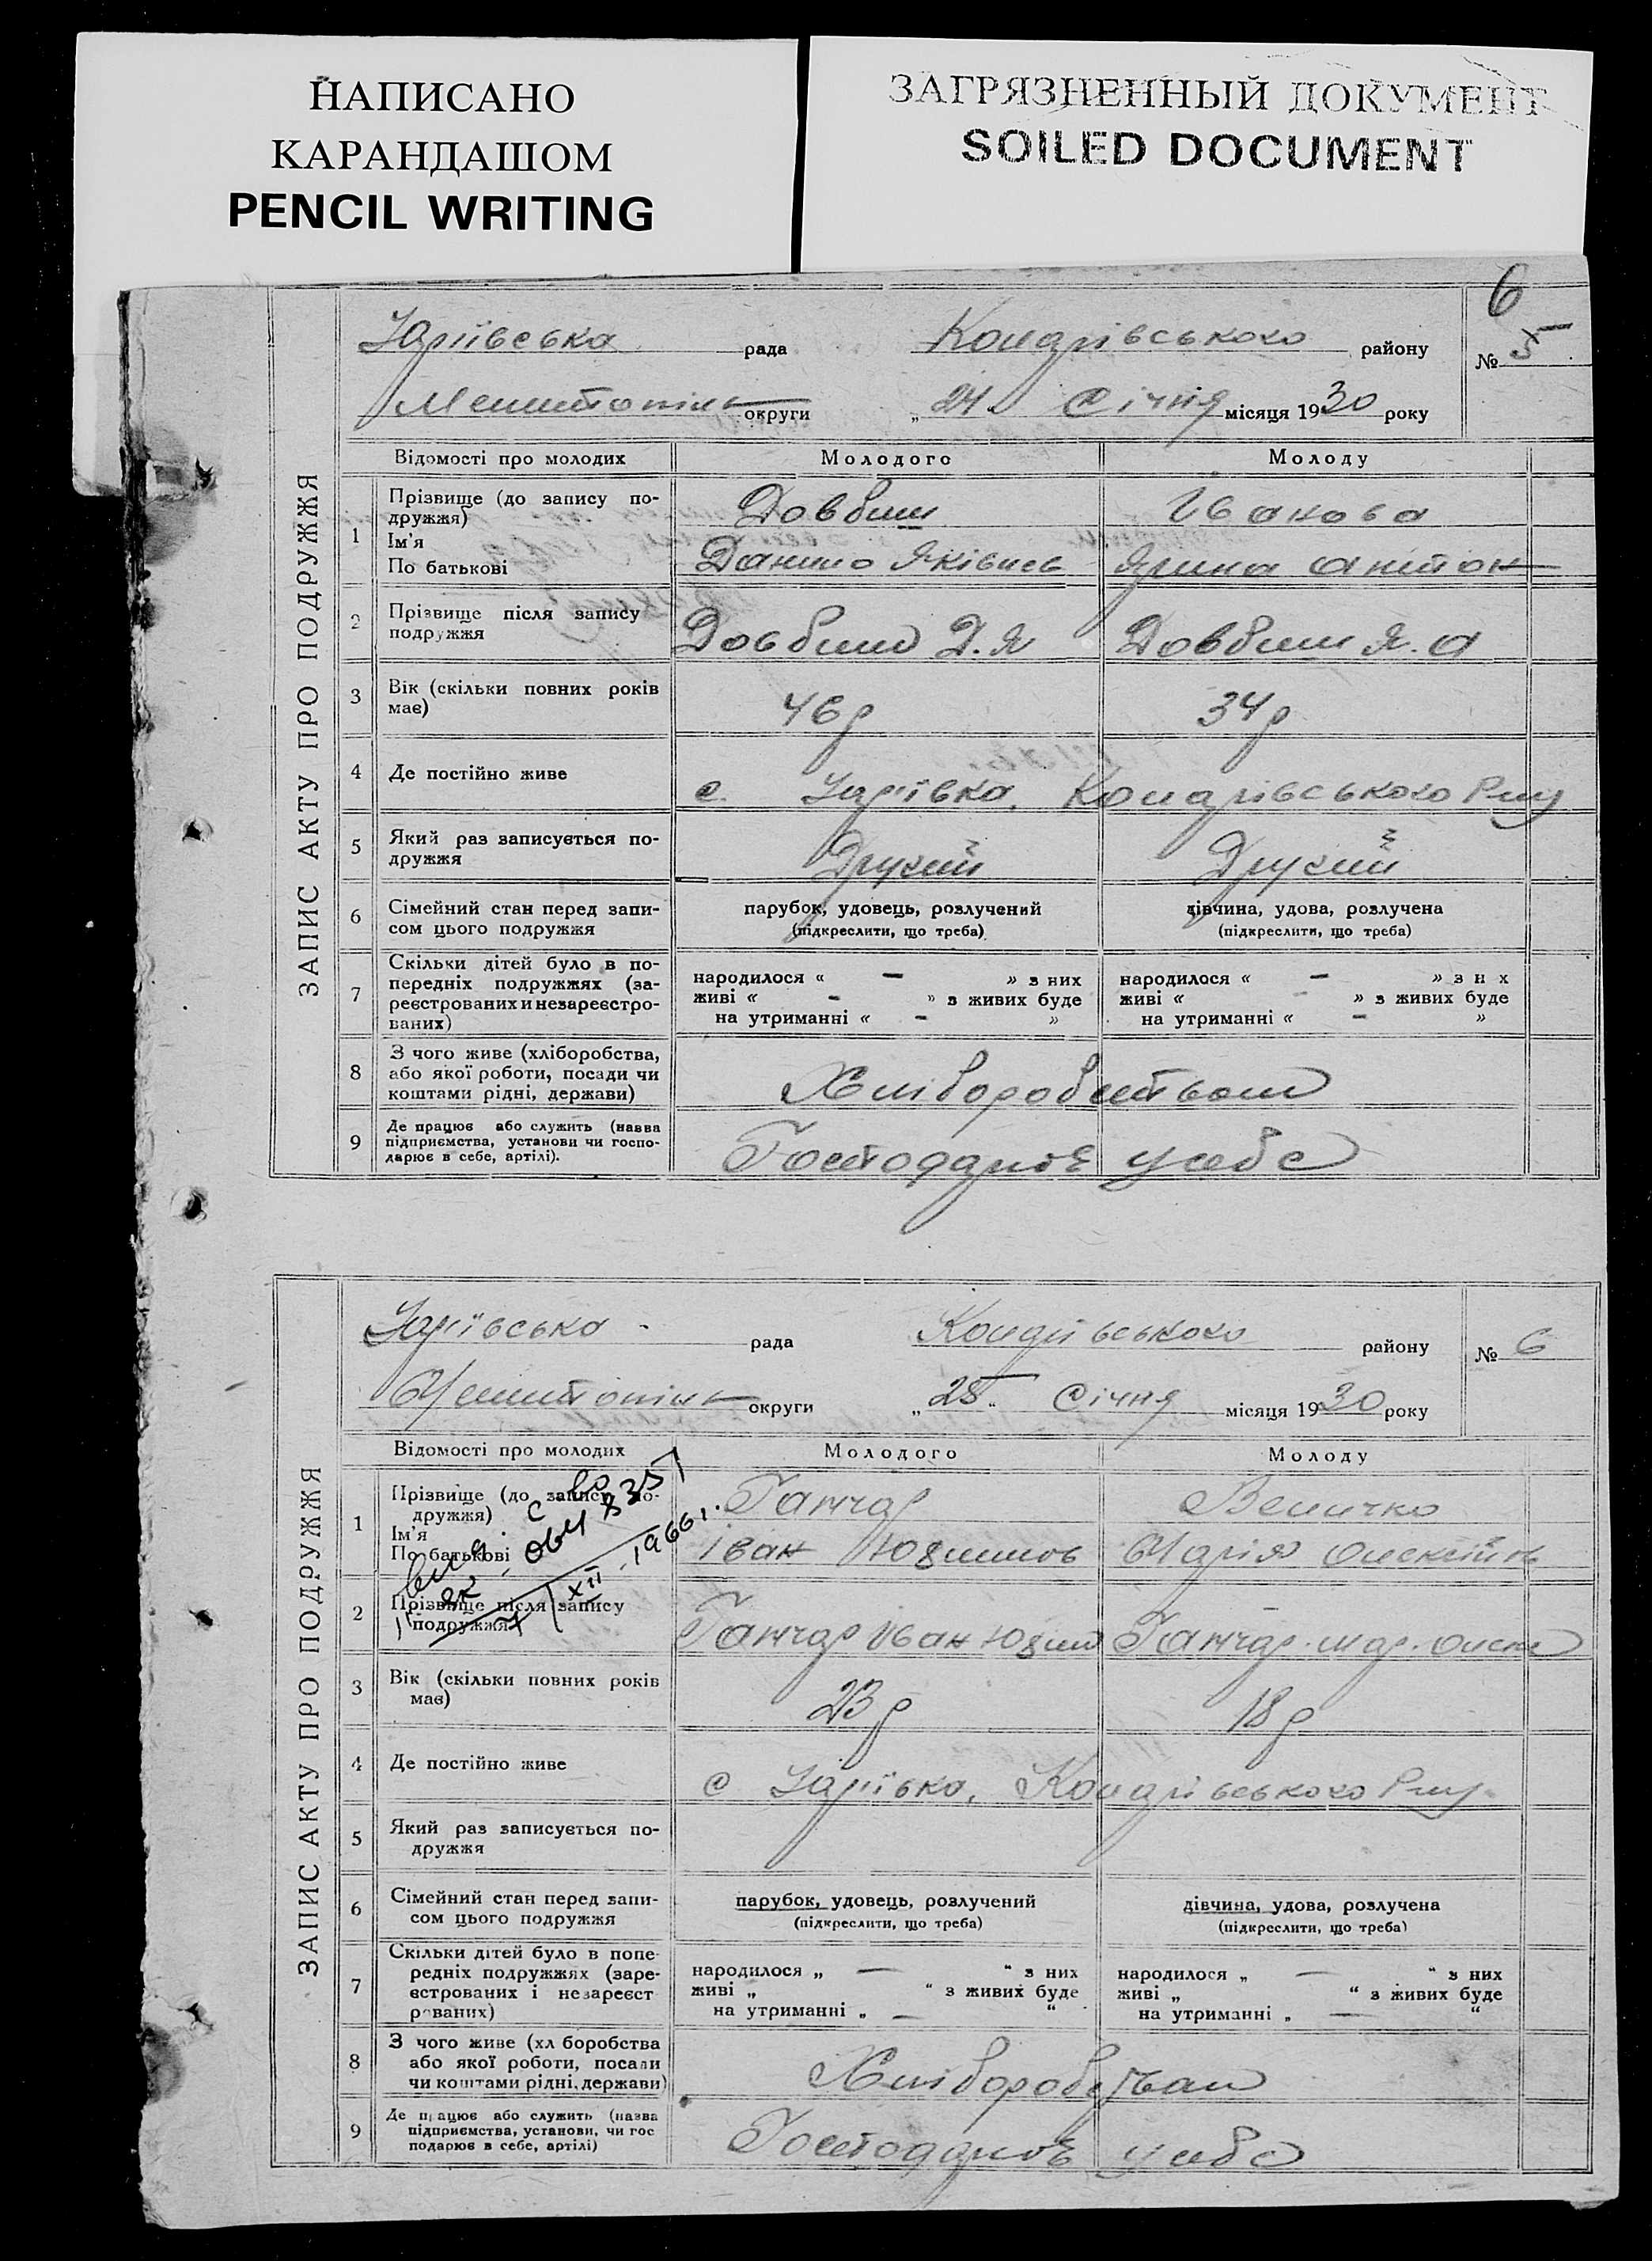 НАПИСАНО
КАРАНДАШОМ
PENCIL WRITING
ЗАГРЯЗНЕННЫЙ ДОКУМЕНТ
SOILED DOCUMENT
6
ЗАПИС АКТУ ПРО ПОДРУЖЖЯ
Юріївська рада району № 5
округи „24" Січня місяця 1930 року
Відомості про молодих Молодого Молоду
1 Прізвище (до запису по-
дружжя) Довбиш Іванова
Ім'я
По батькові Данило Яківнев Ярина Антон
2 Прізвище після запису
подружжя Довбиш Д. Я Довбиш Я. А
3 Вік (скільки повних років
має) 46 р 34 р
4 Де постійно живе с. Юріївка,
5 Який раз записується по-
дружжя Другий Другий
6 Сімейний стан перед запи-
сом цього подружжя
парубок, удовець, розлучений
(підкреслити, що треба)
дівчина, удова, розлучена
(підкреслити, що треба)
7 Скільки дітей було в по-
передніх подружжях (за-
реєстрованих и незареєстро-
ваних)
народилося « — » з них
живі « - » з живих буде
на утриманні « - »
народилося « — » з н х
живі « - » з живих буде
на утриманні « - »
8 З чого живе (хліборобства,
або якої роботи, посади чи
коштами рідні, держави) Хліборобством
9 Де працює або служить (назва
підприємства, установи чи госпо-
дарює в себе, артілі). Господарює у себе
ЗАПИС АКТУ ПРО ПОДРУЖЖЯ
Юріївська рада району № 6
округи „25" Січня місяця 1930 року
Відомості про молодих Молодого Молоду
1 Прізвище (до запису по-
дружжя) Гончар Величко
Ім'я
По батькові Іван Юхимов Марія Олексіїв
XII 1966 г.
2 Прізвище після запису
подружжя Гончар Іван Юхим Гончар. Мар. Олекс
3 Вік (скільки повних років
має) 23 р 18 р
4 Де постійно живе с Юріївка,
5 Який раз записується по-
дружжя
6 Сімейний стан перед запи-
сом цього подружжя
парубок, удовець, розлучений
(підкреслити, що треба)
дівчина, удова, розлучена
(підкреслити, що треба)
7 Скільки дітей було в попе-
редніх подружжях (заре-
єстрованих і незареєст
рованих)
народилося „ — " з них
живі „ " з живих буде
на утриманні „ — "
народилося „ — " з них
живі „ " з живих буде
на утриманні „ — "
8 З чого живе (хл боробства
або якої роботи, посади
чи коштами рідні, держави) Хліборобством
9 Де працює або служить (назва
підприємства, установи, чи гос
подарює в себе, артілі) Господарює у себе